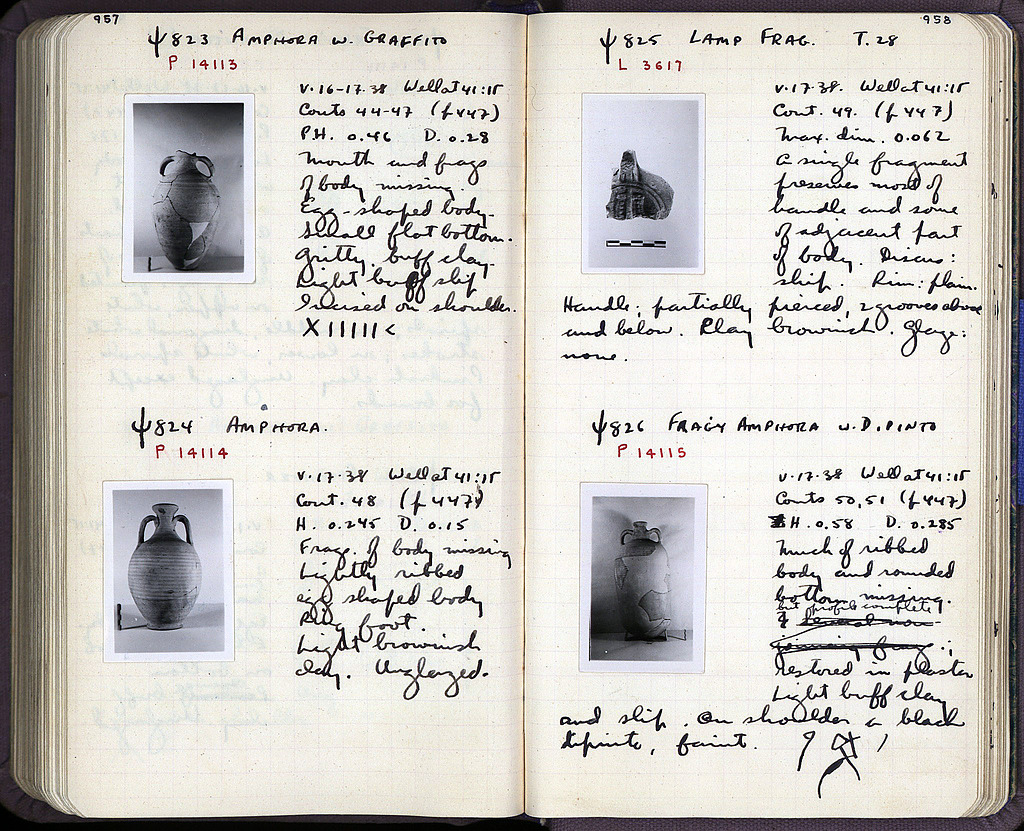 957
ψ823 AMPHORA W. GRAFFITO
P 14113
V.16-17.38 Well at 41:15
Conts 44-47 (f 447)
P.H. 0.46 D. 0.28
Mouth and frags
of body missing.
Egg-shaped body-
small flat bottom.
Gritty, buff clay-
Light buff slip
Incised on shoulder.
X I I I I I <
ψ824 AMPHORA.
P 14114
V.17.38 Well at 41:15
Cont. 48 (f 447)
H. 0.245 D. 0.15
Frags. of body missing
Lightly ribbed
egg shaped body
Ring foot.
Light brownish
clay. Unglazed.
958
ψ825 LAMP FRAG. T.28
L 3617
V.17.38. Well at 41:15
Cont. 49. (f 447)
Max. dim. 0.062
A single fragment
preserves most of
handle and some
of adjacent part
of body. Discus:
ship. Rim: plain.
Handle; partially pierced, 2 grooves above
and below. Clay brownish. Glaze:
none.
ψ826 FRAG'Y AMPHORA W. DIPINTO
P 14115
V.17.38 Well at 41:15
Conts 50,51 (f 447)
H. 0.58 D. 0.285
Much of ribbed
body and rounded
bottom missing.
but profile complete
&
restored in plaster
Light buff clay
and slip. On shoulder a black
dipinto, faint.